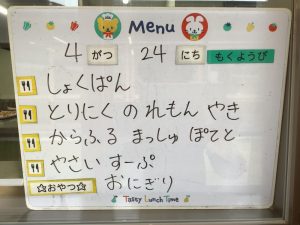 Menu
4 がつ 24 にち もくようび
しょくぱん
とりにく の れもん やき
からふる まっしゅ ぽてと
やさい すーぷ
☆おやつ☆ おにぎり
Tasty Lunch Time